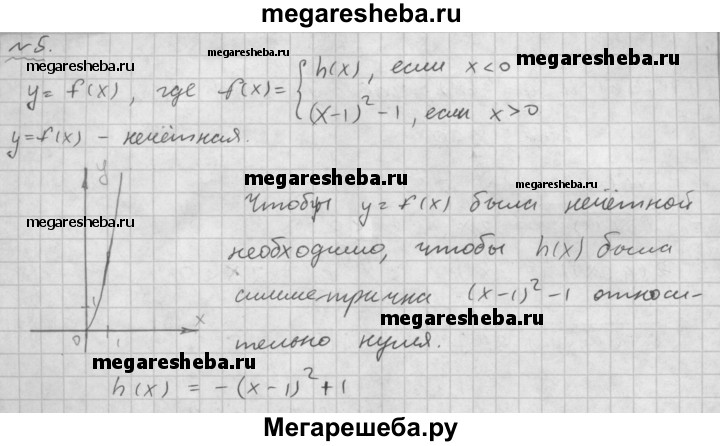 megaresheba.ru
№5.
megaresheba.ru
megaresheba.ru
y = f(x), где f(x) = { h(x), если x<0
(x-1)² -1, если x>0
megaresheba.ru
y=f(x) – нечётная.
y
megaresheba.ru
megaresheba.ru
Чтобы y = f(x) была нечётной
megaresheba.ru
необходимо, чтобы h(x) была
симметрична (x-1)² -1 относи-
1
megaresheba.ru
x
тельно нуля.
0 1
megaresheba.ru
h(x) = -(x-1)² +1
Мегарешеба.ру